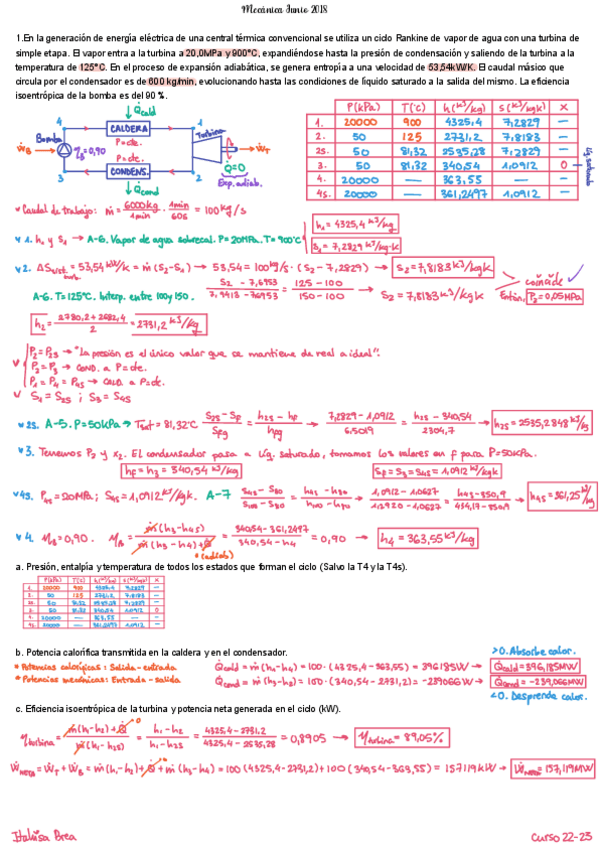 Mecánica Junio 2018
1.En la generación de energía eléctrica de una central térmica convencional se utiliza un ciclo Rankine de vapor de agua con una turbina de
simple etapa. El vapor entra a la turbina a 20,0MPa y 900°C, expandiéndose hasta la presión de condensación y saliendo de la turbina a la
temperatura de 125°C. En el proceso de expansión adiabática, se genera entropía a una velocidad de 53,54kW/K. El caudal másico que
circula por el condensador es de 600 kg/min, evolucionando hasta las condiciones de líquido saturado a la salida del mismo. La eficiencia
isoentrópica de la bomba es del 90 %.
Q̇cald
4 CALDERA 1
P=cte.
Bomba ηB=0,90 Turbina
ẆB ẆT
P=cte.
3 CONDENS. 2
Q̇=0
Q̇cond Exp. adiab.
P(kPa) T(°C) h(kJ/kg) s(kJ/kgK) x
1. 20000 900 4325,4 7,2829 —
2. 50 125 2731,2 7,8183 —
2s. 50 81,32 2535,28 7,2829 —
3. 50 81,32 340,54 1,0912 0 Líq. saturado
4. 20000 — 363,55 — —
4s. 20000 — 361,2497 1,0912 —
Caudal de trabajo: ṁ = 6000kg/1min · 1min/60s = 100 kg/s
1. h1 y s1 → A-6. Vapor de agua sobrecal. P=20MPa. T=900°C h1 = 4325,4 kJ/kg
s1 = 7,2829 kJ/kg·K
2. ΔSsist = 53,54 kW/K = ṁ(s2-s1) → 53,54 = 100kg/s · (s2-7,2829) → s2=7,8183 kJ/kgK
A-6. T=125°C. Interp. entre 100 y 150. s2-7,6953/7,9413-7,6953 = 125-100/150-100 → s2=7,8183 kJ/kgK coincide Entón. P2=0,05MPa
h2 = 2780,2+2682,4/2 = 2731,2 kJ/kg
P2=P2s → "La presión es el único valor que se mantiene de real a ideal".
P2=P3 → COND. a P=cte.
P1=P4=P4s → CALD. a P=cte.
S1=S2s ; S3=S4s
2s. A-5. P=50kPa → Tsat=81,32°C s2s-sf/sfg = h2s-hf/hfg → 7,2829-1,0912/6,5019 = h2s-340,54/2304,7 → h2s=2535,2848 kJ/kg
3. Tenemos P3 y x3. El condensador pasa a líq. saturado, tomamos los valores en f para P=50kPa.
hf=h3=340,54 kJ/kg sf=s3=s4s=1,0912 kJ/kgK
4s. P4s=20MPa; S4s=1,0912 kJ/kgK. A-7 s4s-s80/s100-s80 = h4s-h80/h100-h80 → 1,0912-1,0627/1,2920-1,0627 = h4s-350,9/434,17-350,9 → h4s=361,25 kJ/kg
4. ηB=0,90. ηB = ṁ(h3-h4s)/ṁ(h3-h4)+Q̇ (adiab) = 340,54-361,2497/340,54-h4 = 0,90 → h4=363,55 kJ/kg
a. Presión, entalpía y temperatura de todos los estados que forman el ciclo (Salvo la T4 y la T4s).
P(kPa) T(°C) h(kJ/kg) s(kJ/kgK) x
1. 20000 900 4325,4 7,2829 —
2. 50 125 2731,2 7,8183 —
2s. 50 81,32 2535,28 7,2829 —
3. 50 81,32 340,54 1,0912 0
4. 20000 — 363,55 — —
4s. 20000 — 361,2497 1,0912 —
b. Potencia calorífica transmitida en la caldera y en el condensador.
>0. Absorbe calor.
* Potencias caloríficas: Salida-entrada Q̇cald = ṁ(h1-h4) = 100·(4325,4-363,55) = 396185W → Q̇cald=396,185MW
* Potencias mecánicas: Entrada-salida Q̇cond = ṁ(h3-h2) = 100·(340,54-2731,2) = -239066W → Q̇cond=-239,066MW
<0. Desprende calor.
c. Eficiencia isoentrópica de la turbina y potencia neta generada en el ciclo (kW).
ηturbina = ṁ(h1-h2)+Q̇/ṁ(h1-h2s) = h1-h2/h1-h2s = 4325,4-2731,2/4325,4-2535,28 = 0,8905 → ηturbina=89,05%
ẆNETA = ẆT+ẆB = ṁ(h1-h2)+Q̇+ṁ(h3-h4) = 100(4325,4-2731,2)+100(340,54-363,55) = 157119kW → ẆNETA=157,119MW
Brea
Curso 22-23